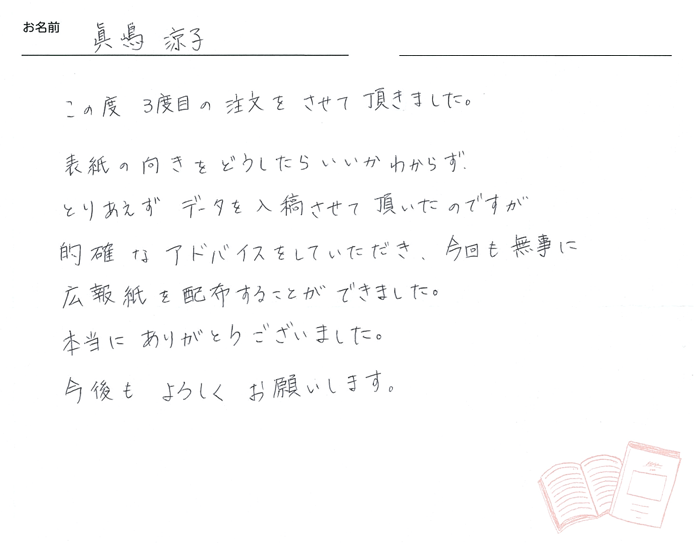 お名前 眞嶋 涼子
この度 3度目の注文をさせて頂きました。
表紙の向きをどうしたらいいかわからず、
とりあえず データを入稿させて頂いたのですが
的確な アドバイスをしていただき、今回も無事に
広報紙を配布することができました。
本当に ありがとうございました。
今後も よろしく お願いします。